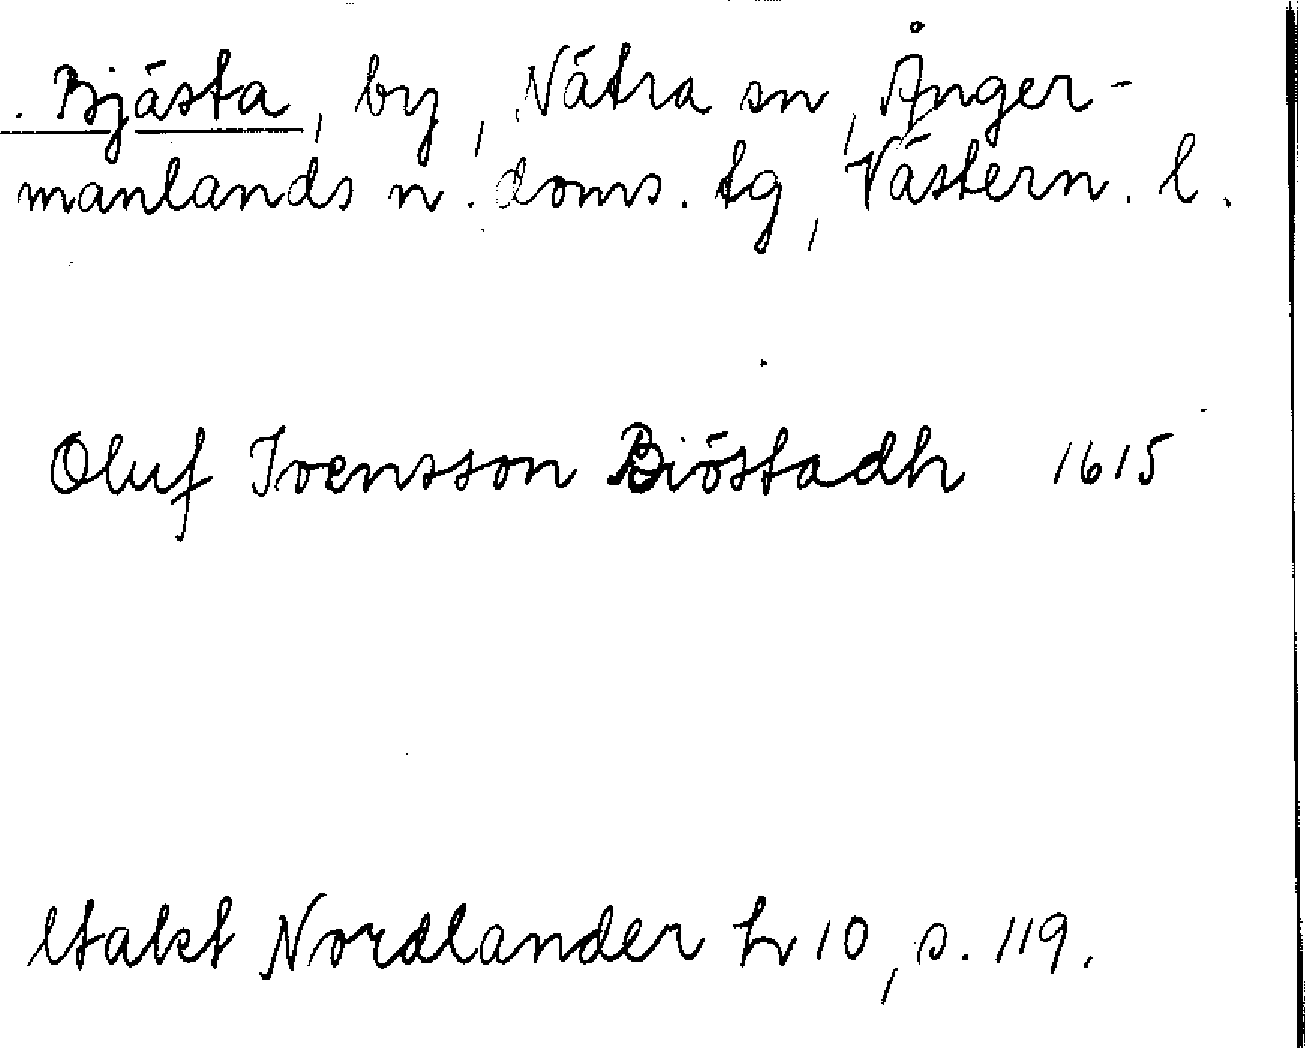 . Bjästa, by, Nätra sn, Ånger-
manlands n. doms. tg, Västern. l.
Oluf Ivensson Biöstadh 1615
Utakt Nordlander h 10, s. 119.